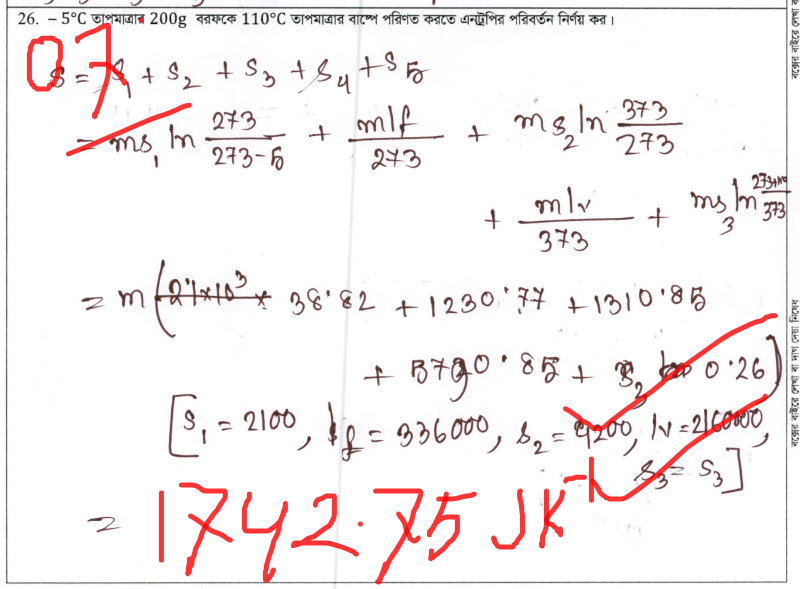 26. – 5°C তাপমাত্রার 200g বরফকে 110°C তাপমাত্রার বাষ্পে পরিণত করতে এনট্রপির পরিবর্তন নির্ণয় কর।
07
S = S₁ + S₂ + S₃ + S₄ + S₅
= ms₁ ln 273/273-5 + mlf/273 + ms₂ ln 373/273
+ mlv/373 + ms₃ ln 373
= m ( 2.1×10³ × 38.82 + 1230.77 + 1310.85
+ 5790.85 + 0.26 )
[ S₁ = 2100, lf = 336000, s₂ = 4200, lv = 2160000,
s₃ = s₃ ]
= 1742.75 JK⁻¹
বক্সের বাইরে লেখা বা দাগ দেয়া নিষেধ